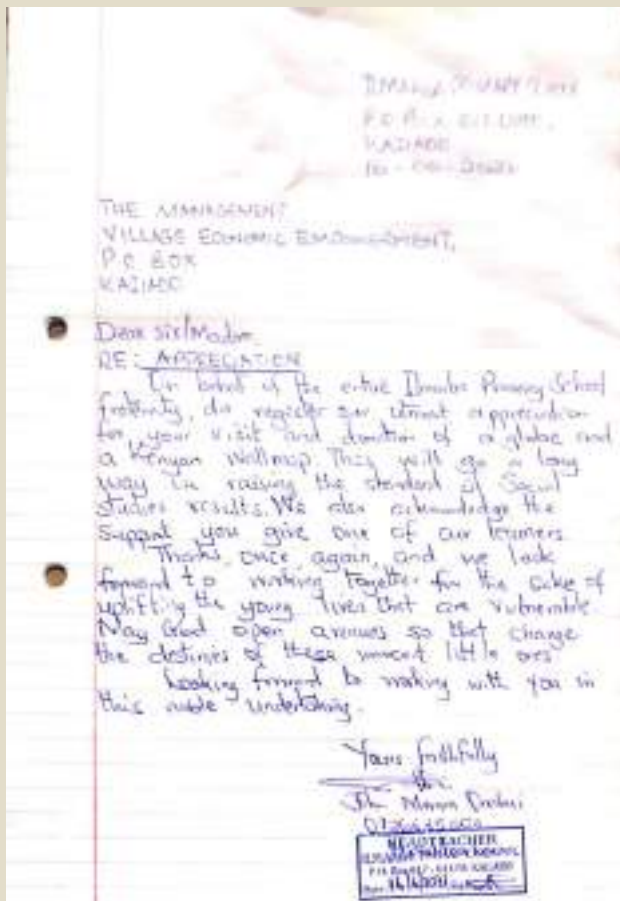 P.O. Box
KAJIADO
THE MANAGEMENT
VILLAGE ECONOMIC EMPOWERMENT,
P.O BOX
KAJIADO
Dear Sir/Madam
RE: APPRECIATION
On behalf of the entire Primary School
fraternity, do register our utmost appreciation
for your visit and donation of a globe and
a Kenyan Wallmap. This will go a long
way in raising the standard of Social
studies results. We also acknowledge the
support you give one of our learners
Thanks once again, and we look
forward to working together for the sake of
uplifting the young lives that are vulnerable
May God open avenues so that change
the destinies of these little ones
Looking forward to working with you in
this noble undertaking.
Yours faithfully
HEADTEACHER